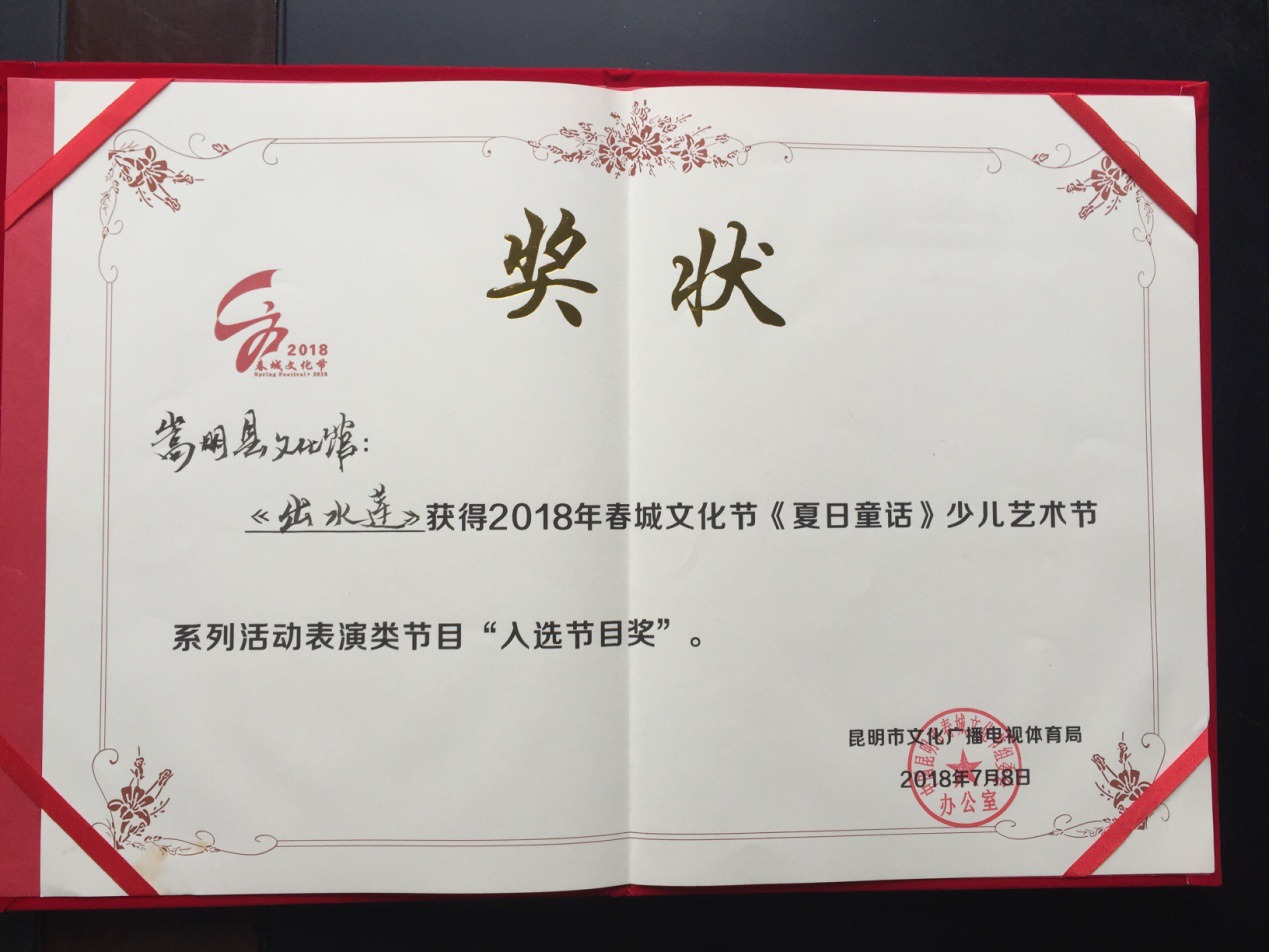 奖状
2018
春城文化节
Spring Festival • 2018
嵩明县文化馆：
《出水莲》获得2018年春城文化节《夏日童话》少儿艺术节
系列活动表演类节目“入选节目奖”。
昆明市文化广播电视体育局
2018年7月8日
办公室